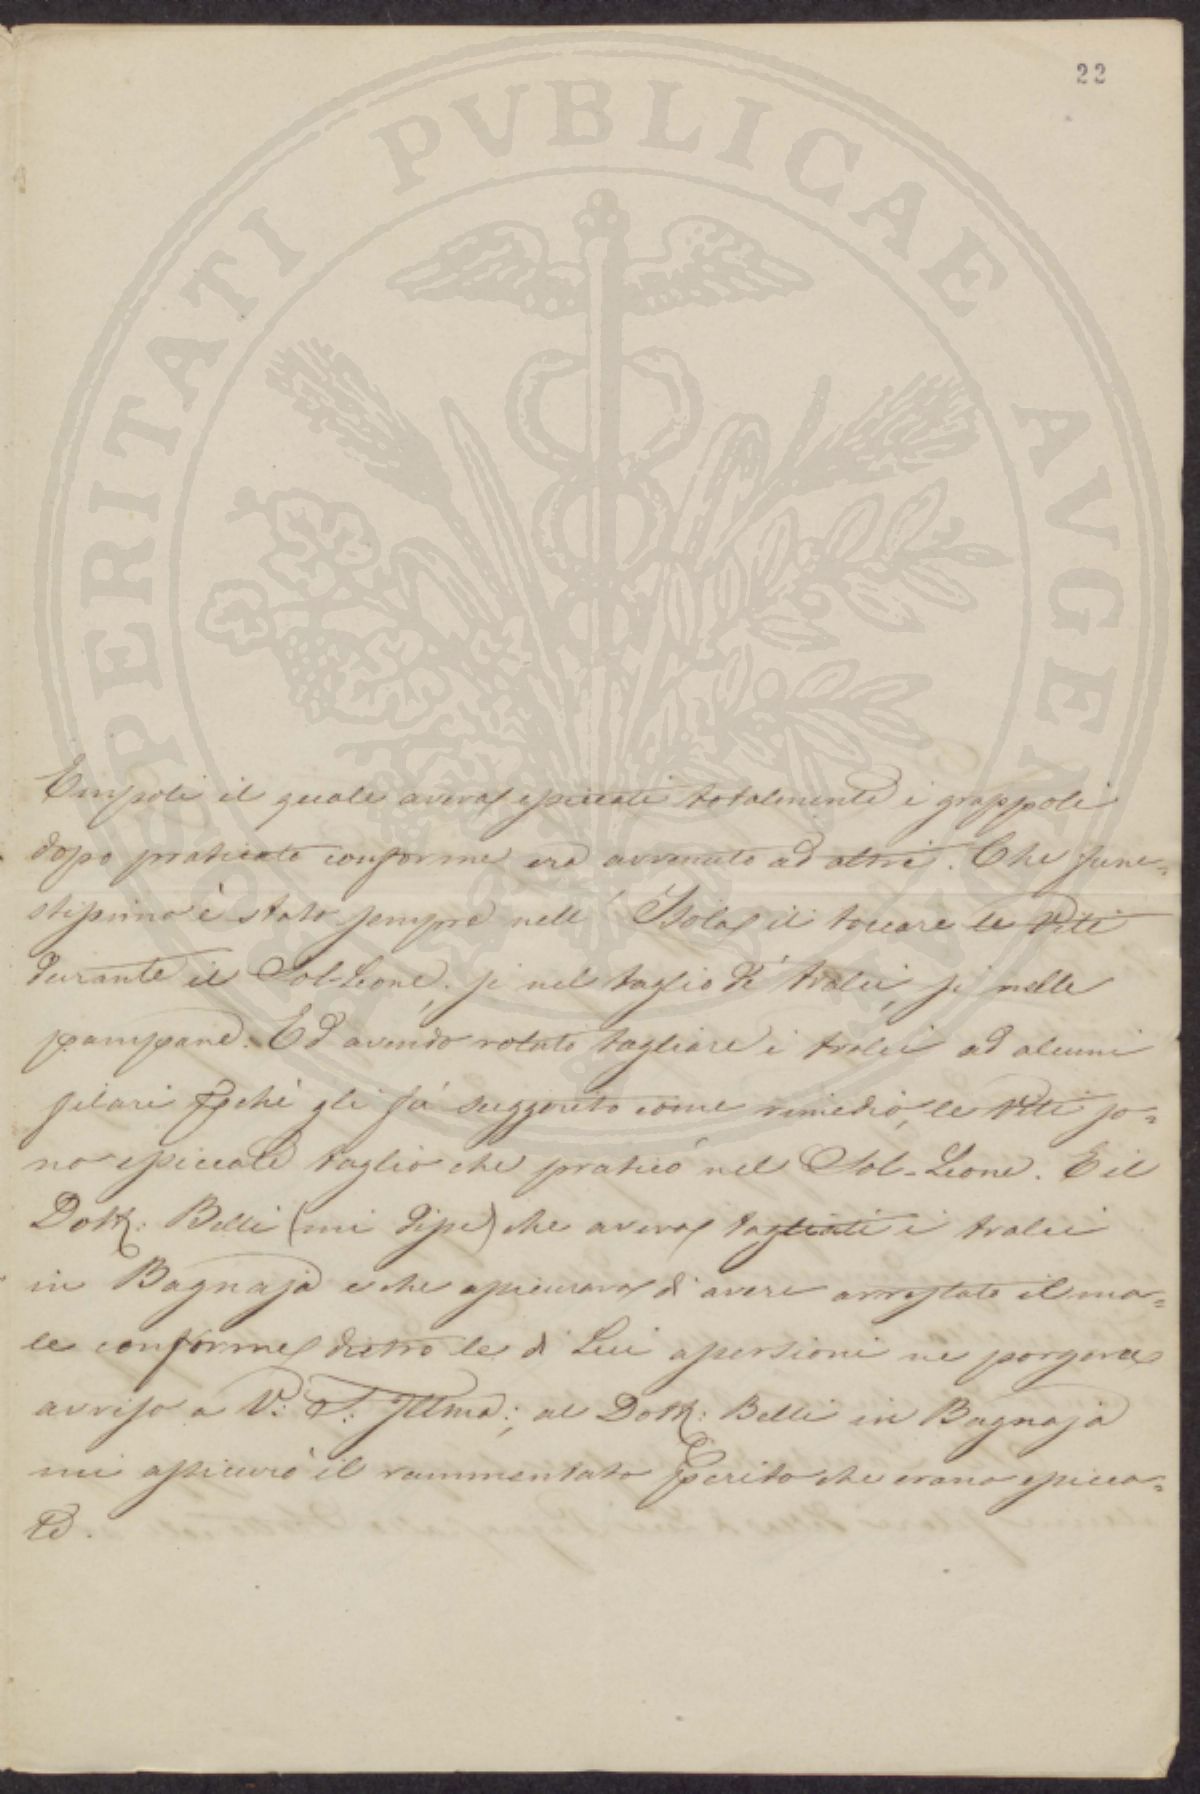 22
PROSPERITATI PVBLICAE AVGENDAE
Empoli il quale aveva spiccati totalmente i grappoli
dopo praticato conforme era avvenuto ad altri. Che fune=
stissimo è stato sempre nell' Isola il toccare le Viti
durante il Sol-Leone, si nel taglio de' tralci, si nelle
pampane. Ed avendo voluto tagliare i tralci ad alcuni
filari pchè gli fù suggerito come rimedio, le Viti so=
no spiccate taglio che praticò nel Sol-Leone. E il
Dott: Belli (mi disse) che aveva tagliati i tralci
in Bagnaja e che assicurava di avere arrestato il ma=
le conforme dietro le di Lui assersioni ne porgeva
avviso a V: S: Illma; al Dott: Belli in Bagnaja
mi assicurò il rammentato Perito che erano spicca=
te.